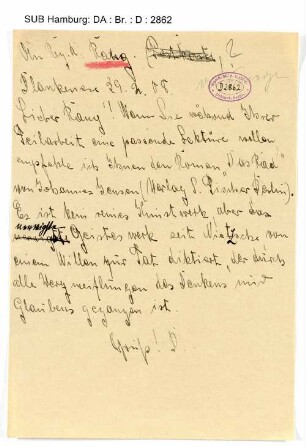 SUB Hamburg: DA : Br. : D : 2862
An Rg. R. Rang. ?
Blankenese 29. 4. 08
Lieber Rang! Wenn Sie während Ihrer
eine passende Lektüre wollen
empfehle ich Ihnen den Roman "Das Rad"
von Johannes Jensen (Verlag S. Fischer Berlin).
Es ist kein reines Kunstwerk aber das
einzigste
Geisteswerk seit Nietzsche von
einem Willen zur Tat diktiert, der durch
alle Verzweiflungen des Denkens und
Glaubens gegangen ist.
Gruß! D.
D2862